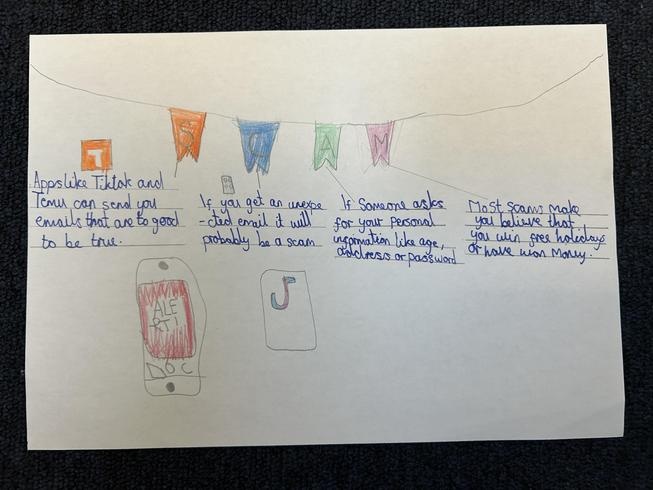 S C A M
T
Apps like Tiktok and
Temu can send you
emails that are to good
to be true.
If you get an unexpe
-cted email it will
probably be a scam
If Someone asks
for your personal
information like age,
address or password
Most scams make
you believe that
you win free holidays
or have won Money.
ALE
RT!